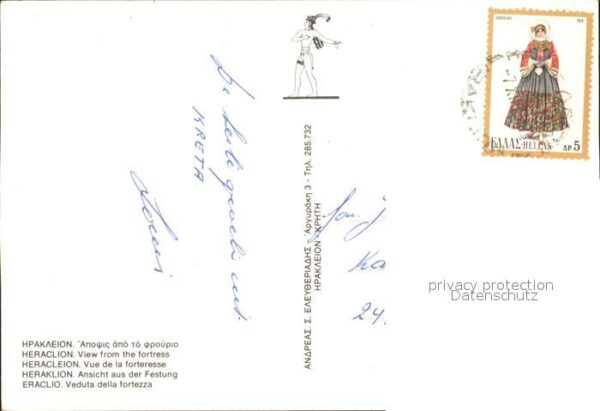 ΗΡΑΚΛΕΙΟΝ. Ἄποψις ἀπὸ τὸ φρούριο
HERACLION. View from the fortress
HERACLEION. Vue de la forteresse
HERAKLION. Ansicht aus der Festung
ERACLIO. Veduta della fortezza
De beste groeten uit
KRETA
ΑΝΔΡΕΑΣ. Σ. ΕΛΕΥΘΕΡΙΑΔΗΣ - Ἀργυράκη 3 - Τηλ. 285.732
ΗΡΑΚΛΕΙΟΝ - ΚΡΗΤΗ
ΕΛΛΑΣ-HELLAS ΔΡ. 5
Fam.
Ka
24.
privacy protection
Datenschutz